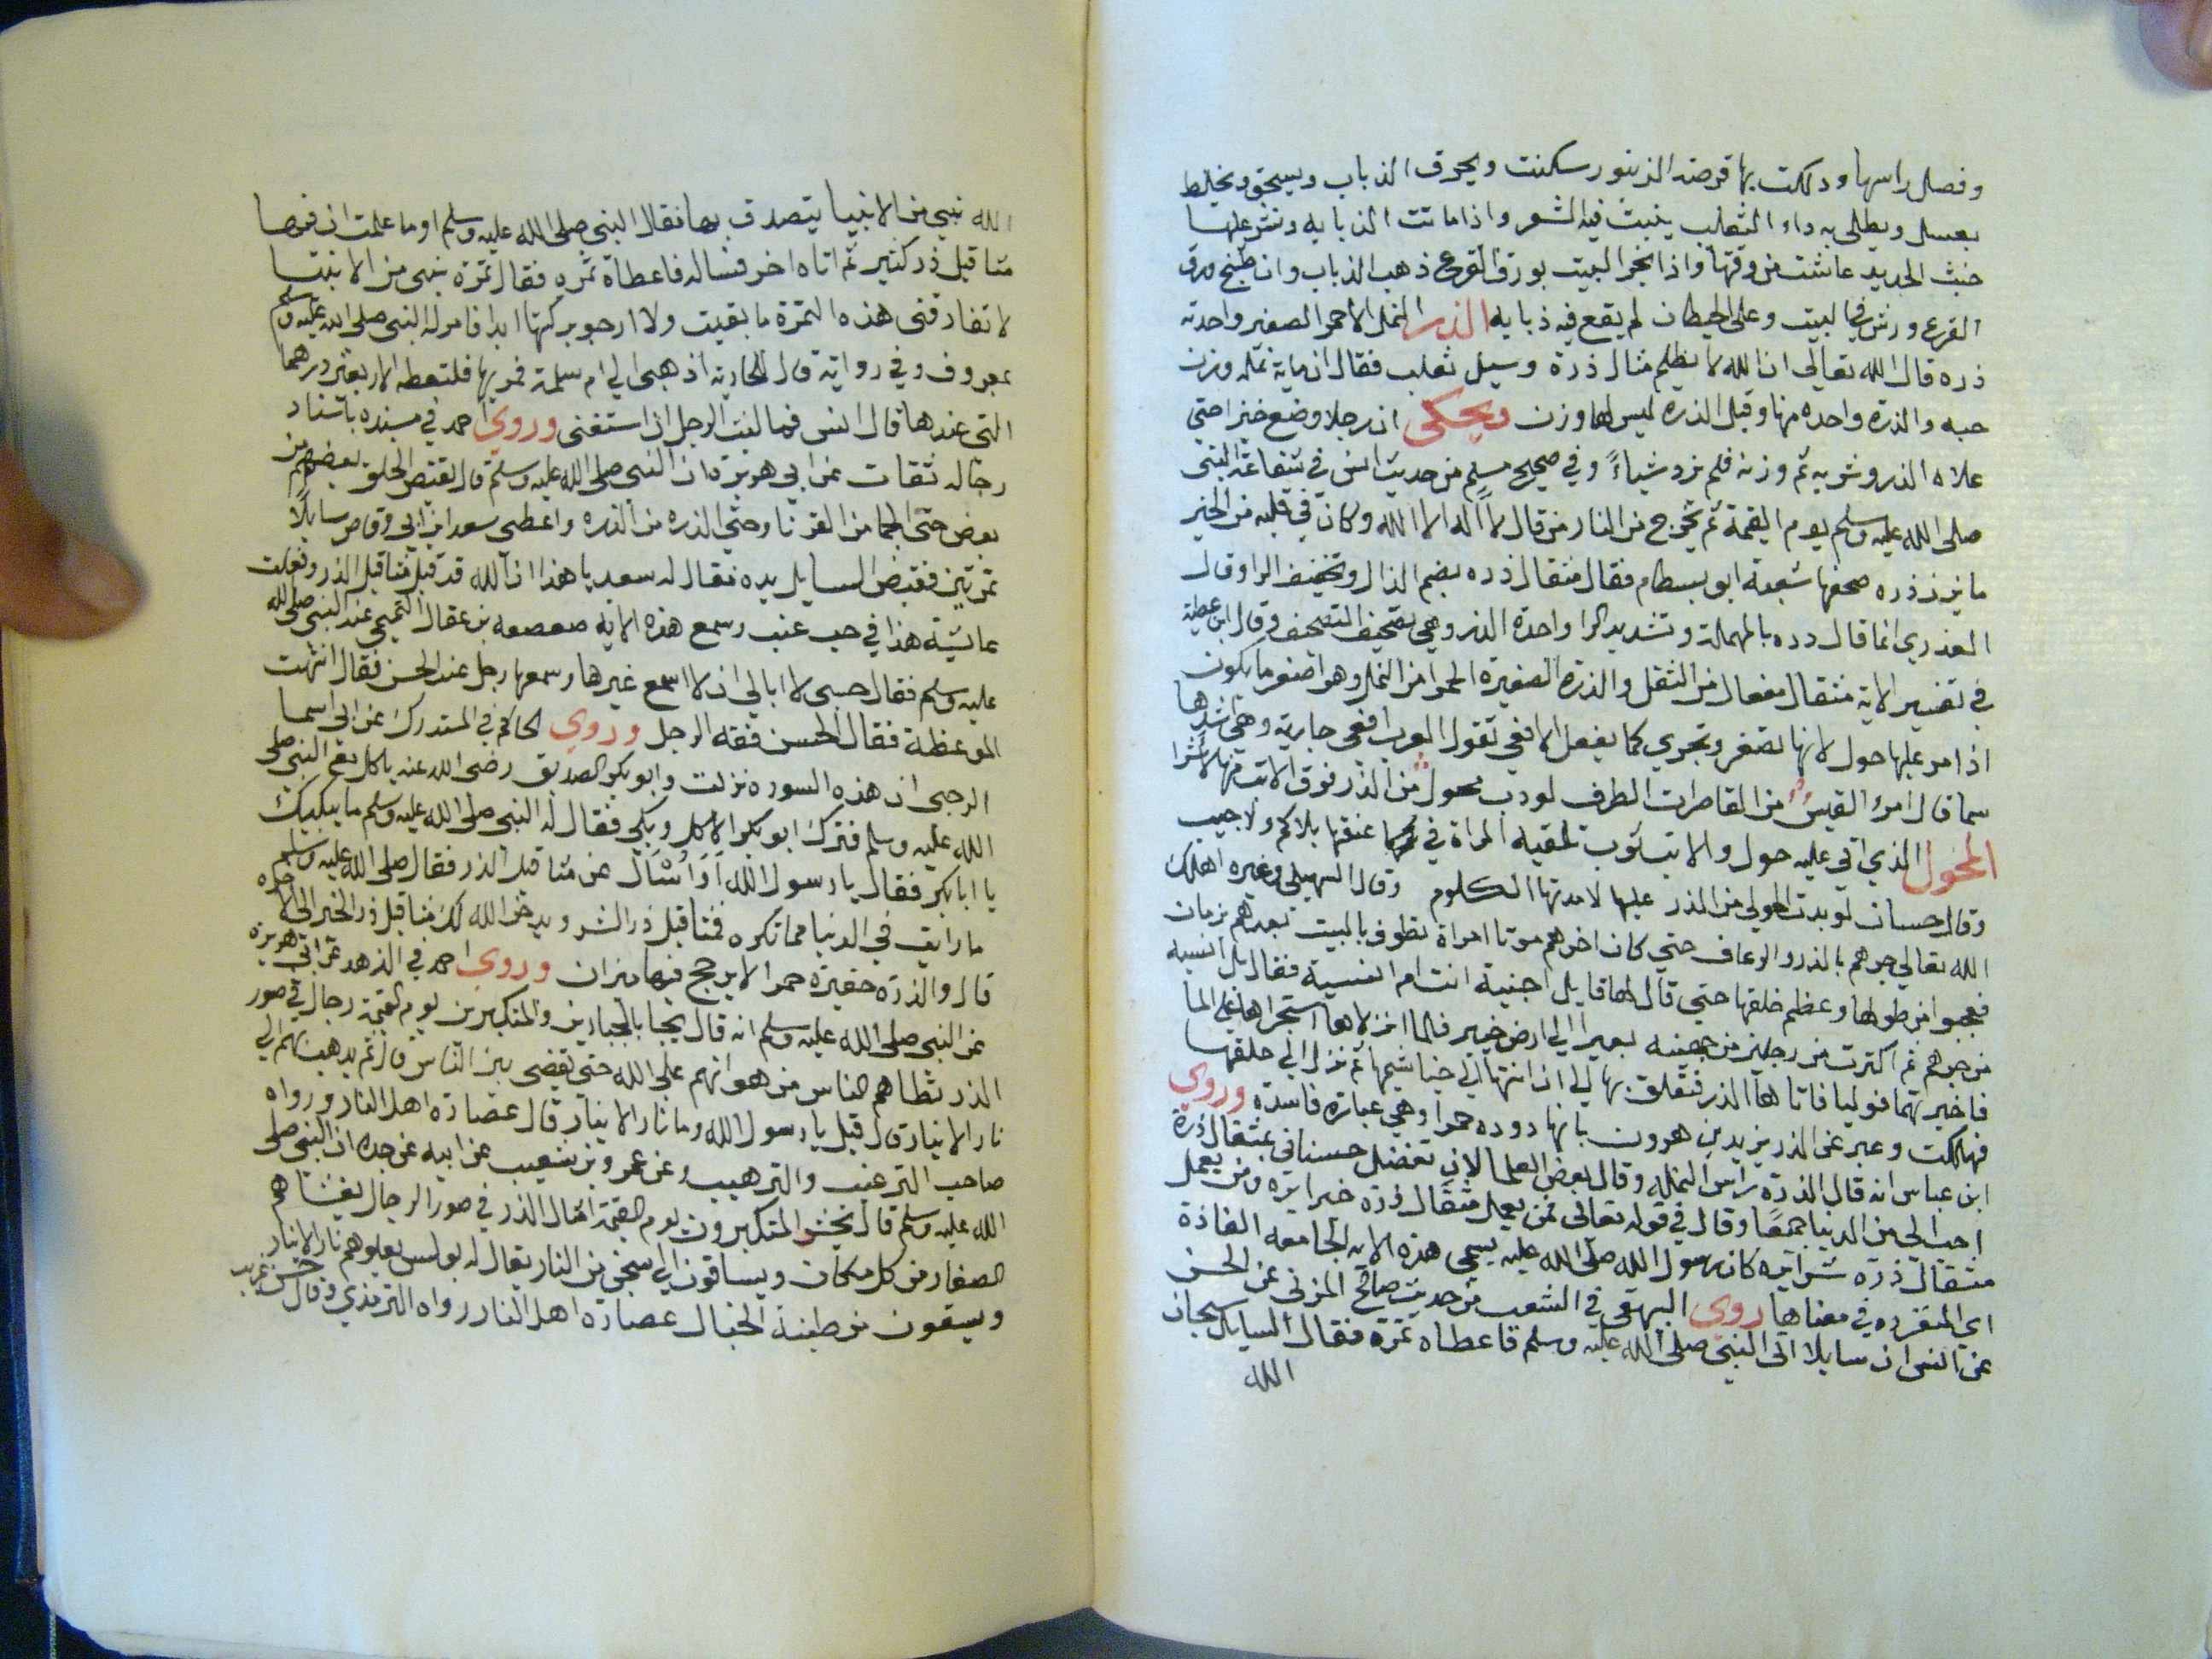 وفصل راسها ودلكت بها قرصة الزنبور سكنت ويحرق الذباب ويسحق ويخلط
بعسل ويطلى به داء الثعلب ينبت فيه الشعر واذا ماتت الذبابه ونثر عليها
خبث الحديد عاشت من وقتها واذا بخر البيت بورق القرع ذهب الذباب وان طبخ ورق
القرع ورش في البيت وعلى الحيطان لم يقع فيه ذبابه الذر النمل الاحمر الصغير واحدته
ذره قال الله تعالى ان الله لا يظلم مثال ذرة وسيل ثعلب فقال ان ماية نمله وزن
حبه والذره واحده منها وقيل الذره ليس لها وزن ويحكى ان رجلا وضع خبزا حتى
علاه الذر وشربه ثم وزنه فلم يزد شياء وفي صحيح مسلم من حديث انس في شفاعة النبى
صلى الله عليه وسلم يوم القيمة ثم يخرج من النار من قال لا اله الا الله وكان في قلبه من الخير
ما يزن ذره صحفها شعبة ابو بسطام فقال مثقال ذره بضم الذال وتخفيف الرا وقال
العذري انما قال دره بالمهملة وتشديد الرا واحدة الدر وهي تصحيف التصحيف وقال ابن عطية
في تفسير الاية مثقال مفعال من الثقل والذرة الصغيرة الحمرا من النمل وهو اصغر ما يكون
اذا مر عليها حول لانها تصغر وتجري كما يفعل الافعى تقول العرب افعى جارية وهي اشدها
سما قال امرؤ القيس من القاصرات الطرف لو دب محول من الذر فوق الاتب منها لاثرا
المحول الذي اتى عليه حول والاتب ثوب تلقيه المراة في عنقها بلا كم ولا جيب
وقال حسان لو يدب الحولي من الذر عليها لاندبتها الكلوم وقال السهيلي وغيره اهلك
الله تعالى جرهم بالذر والرعاف حتى كان اخرهم موتا امراة تطوف بالبيت بعدهم بزمان
فعجبوا من طولها وعظم خلقها حتى قال لها قايل اجنية انت ام انسية فقال بل انسية
من جرهم ثم اكترت من رجلين من جهينه بعيرا الى ارض خيبر فلما انزلاها استخبراها عن الما
فاخبرتهما فوليا فاتاها الذر فتعلق بها الى ان انتها الى خياشيمها ثم نزل الى حلقها
فهلكت وعبر عن الذر يزيد بن هرون بانها دوده حمرا وهي عباره فاسده وروي
ابن عباس انه قال الذرة راس النمله وقال بعض العلما لان تفضل حسناتي بمثقال ذرة
احب الى من الدنيا جمعا وقال في قوله تعالى فمن يعمل مثقال ذرة خيرا يره ومن يعمل
مثقال ذره شرا يره كان رسول الله صلى الله عليه يسمى هذه الايه الجامعه الفاذة
اي المنفرده في معناها روى البيهقى في الشعب من حديث صالح المزنى عن الحسن
عن انس ان سايلا اتى النبي صلى الله عليه وسلم فاعطاه تمرة فقال السايل سبحان
الله
الله نبي من الانبيا يتصدق بها فقال النبي صلى الله عليه وسلم او ما علمت ان فيها
مثاقيل ذر كثير ثم اتاه اخر فساله فاعطاة تمره فقال تمرة نبى من الانبيا
لا تفارقنى هذه التمرة ما بقيت ولا ارجو بركتها ابدا فامر له النبي صلى الله عليه وسلم
بمعروف وفي رواية قال للجارية اذهبى الى ام سلمة فمريها فلتعطه الاربعين درهما
التى عندها قال انس فما لبث الرجل ان استغنى وروي احمد في مسنده باسناد
رجاله ثقات عن ابي هريرة ان النبي صلى الله عليه وسلم قال يقتص الخلق بعضهم من
بعض حتى الجما من القرنا وحتى الذره من الذره واعطى سعد ابن ابي وقاص سايلا
تمرتين فقبض السايل يده فقال له سعد يا هذا ان الله قد قبل مثاقيل الذر وفعلت
عايشة هذا في حب عنب وسمع هذه الاية صعصعه بن عقال التميمي عند النبي صلى الله
عليه وسلم فقال حسبى لا ابالي ان لا اسمع غيرها وسمعها رجل عند الحسن فقال انتهت
الموعظة فقال الحسن فقه الرجل وروي الحاكم في المستدرك عن ابي اسما
الرحبى ان هذه السورة نزلت وابو بكر الصديق رضى الله عنه ياكل مع النبي صلى
الله عليه وسلم فترك ابو بكر الاكل وبكى فقال له النبي صلى الله عليه وسلم ما يبكيك
يا ابا بكر فقال يا رسول الله اوا سْاَل عن مثاقيل الذر فقال صلى الله عليه وسلم
ما رايت في الدنيا مما تكره فمثاقيل ذر الشر ويدخر الله لك مثاقيل ذر الخير الى الاخره
قال والذره حقيرة حمرا لا يرجح فيها ميزان وروي احمد في الزهد عن ابي هريرة
عن النبي صلى الله عليه وسلم انه قال يجا بالجبارين والمتكبرين يوم القيمة رجال في صور
الذر تطاهم الناس من هوانهم على الله حتى يقضى بين الناس قال ثم يذهب بهم الى
نار الانيار قال قيل يا رسول الله وما نار الانيار قال عصارة اهل النار ورواه
صاحب الترغيب والترهيب وعن عمرو بن شعيب عن ابيه عن جده ان النبي صلى
الله عليه وسلم قال يحشر المتكبرون يوم القيمة امثال الذر في صور الرجال يغشاهم
الصغار من كل مكان ويساقون الى سجن من النار يقال له بولس يعلوهم نار الانيار
ويسقون من طينة الخبال عصارة اهل النار رواه الترمذي وقال حسن غريب